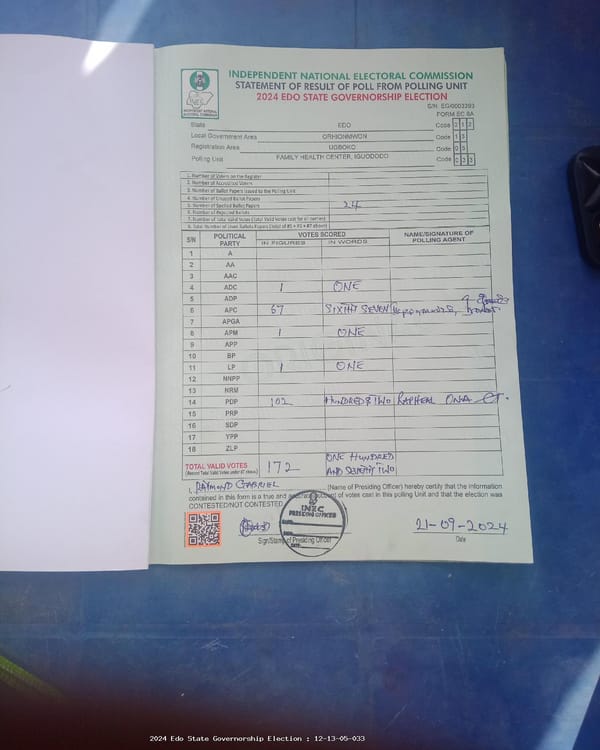 INDEPENDENT NATIONAL ELECTORAL COMMISSION
STATEMENT OF RESULT OF POLL FROM POLLING UNIT
2024 EDO STATE GOVERNORSHIP ELECTION
FORM EC 8A
State EDO Code 2 1 2
Local Government Area ORHIONMWON Code 1 3
Registration Area UGBOKO Code 0 5
Polling Unit FAMILY HEALTH CENTER, IGUODODO Code 0 3 3
1. Number of Voters on the Register
2. Number of Accredited Voters
3. Number of Ballot Papers Issued to the Polling Unit
4. Number of Unused Ballot Papers
5. Number of Spoiled Ballot Papers 24
6. Number of Rejected Ballots
7. Number of Total Valid Votes (Total Valid Votes cast for all parties)
8. Total Number of Used Ballots Papers (Total of #5 + #6 + #7 above)
S/N POLITICAL PARTY VOTES SCORED NAME/SIGNATURE OF POLLING AGENT
IN FIGURES IN WORDS
1 A
2 AA
3 AAC
4 ADC 1 ONE
5 ADP
6 APC 67 SIXTHT SEVEN
7 APGA
8 APM 1 ONE
9 APP
10 BP
11 LP 1 ONE
12 NNPP
13 NRM
14 PDP 102 HUNDRED & TWO RAPHEAL
15 PRP
16 SDP
17 YPP
18 ZLP
TOTAL VALID VOTES 172 ONE HUNDRED AND SEVENTY TWO
I, RAYMOND GABRIEL (Name of Presiding Officer) hereby certify that the information
contained in this form is a true and accurate account of votes cast in this polling Unit and that the election was
CONTESTED/NOT CONTESTED.
INEC
PRESIDING OFFICER
21-09-2024
Sign/Stamp of Presiding Officer Date
2024 Edo State Governorship Election : 12-13-05-033